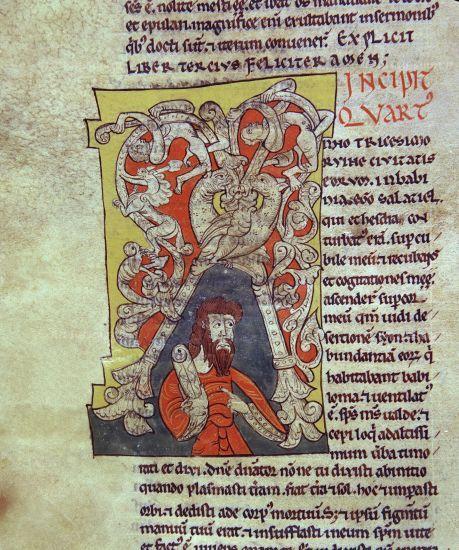 ses ē. nolite mesti eē. et
et epulari. magnifice eni exultabant insermonib;
qb; docti sūt. ⁊ iterum conuener̄. EXPLICIT
LIBER TERCIUS FELICITER AMEN;
INCIPIT
QVARTꝰ
NNO TRICESIMO
RVINE CIVITATIS
EORVM. INBABI
EGO SALATIEL.
qui et hesdra. con
turbatꝰ erā. sup cu
bile meū ⁊ recubans
et cogitationes meę.
ascender̄ sup cor
meū qm̄ uidi de
sertionē syon ⁊ ha
bundantiā eoꝝ q̄
habitabant babi
lonia ⁊ uentilatꝰ
ē. sp̄s m̄s ualde. ⁊
cepi loqͥ adaltissi
mum ūba timo
rati et dixi. dn̄e dn̄ator nōne tu dixisti abinitio
quando plasmasti t̄ram. fiat t̄ra ⁊ sol. hoc ⁊ imp̄asti
orbi. ⁊ dedisti ade corpꝰ mortuū. s; ⁊ ipsū figm̄tū
manuū tuū erat. ⁊ insufflasti ineum sp̄m uite
et factꝰ ē uiuens